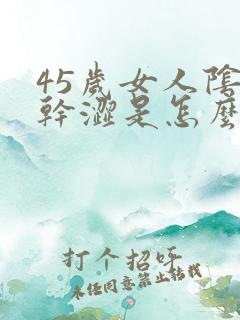 45歲女人陰
幹澀是怎麼
打个招呼
未经同意禁止转载